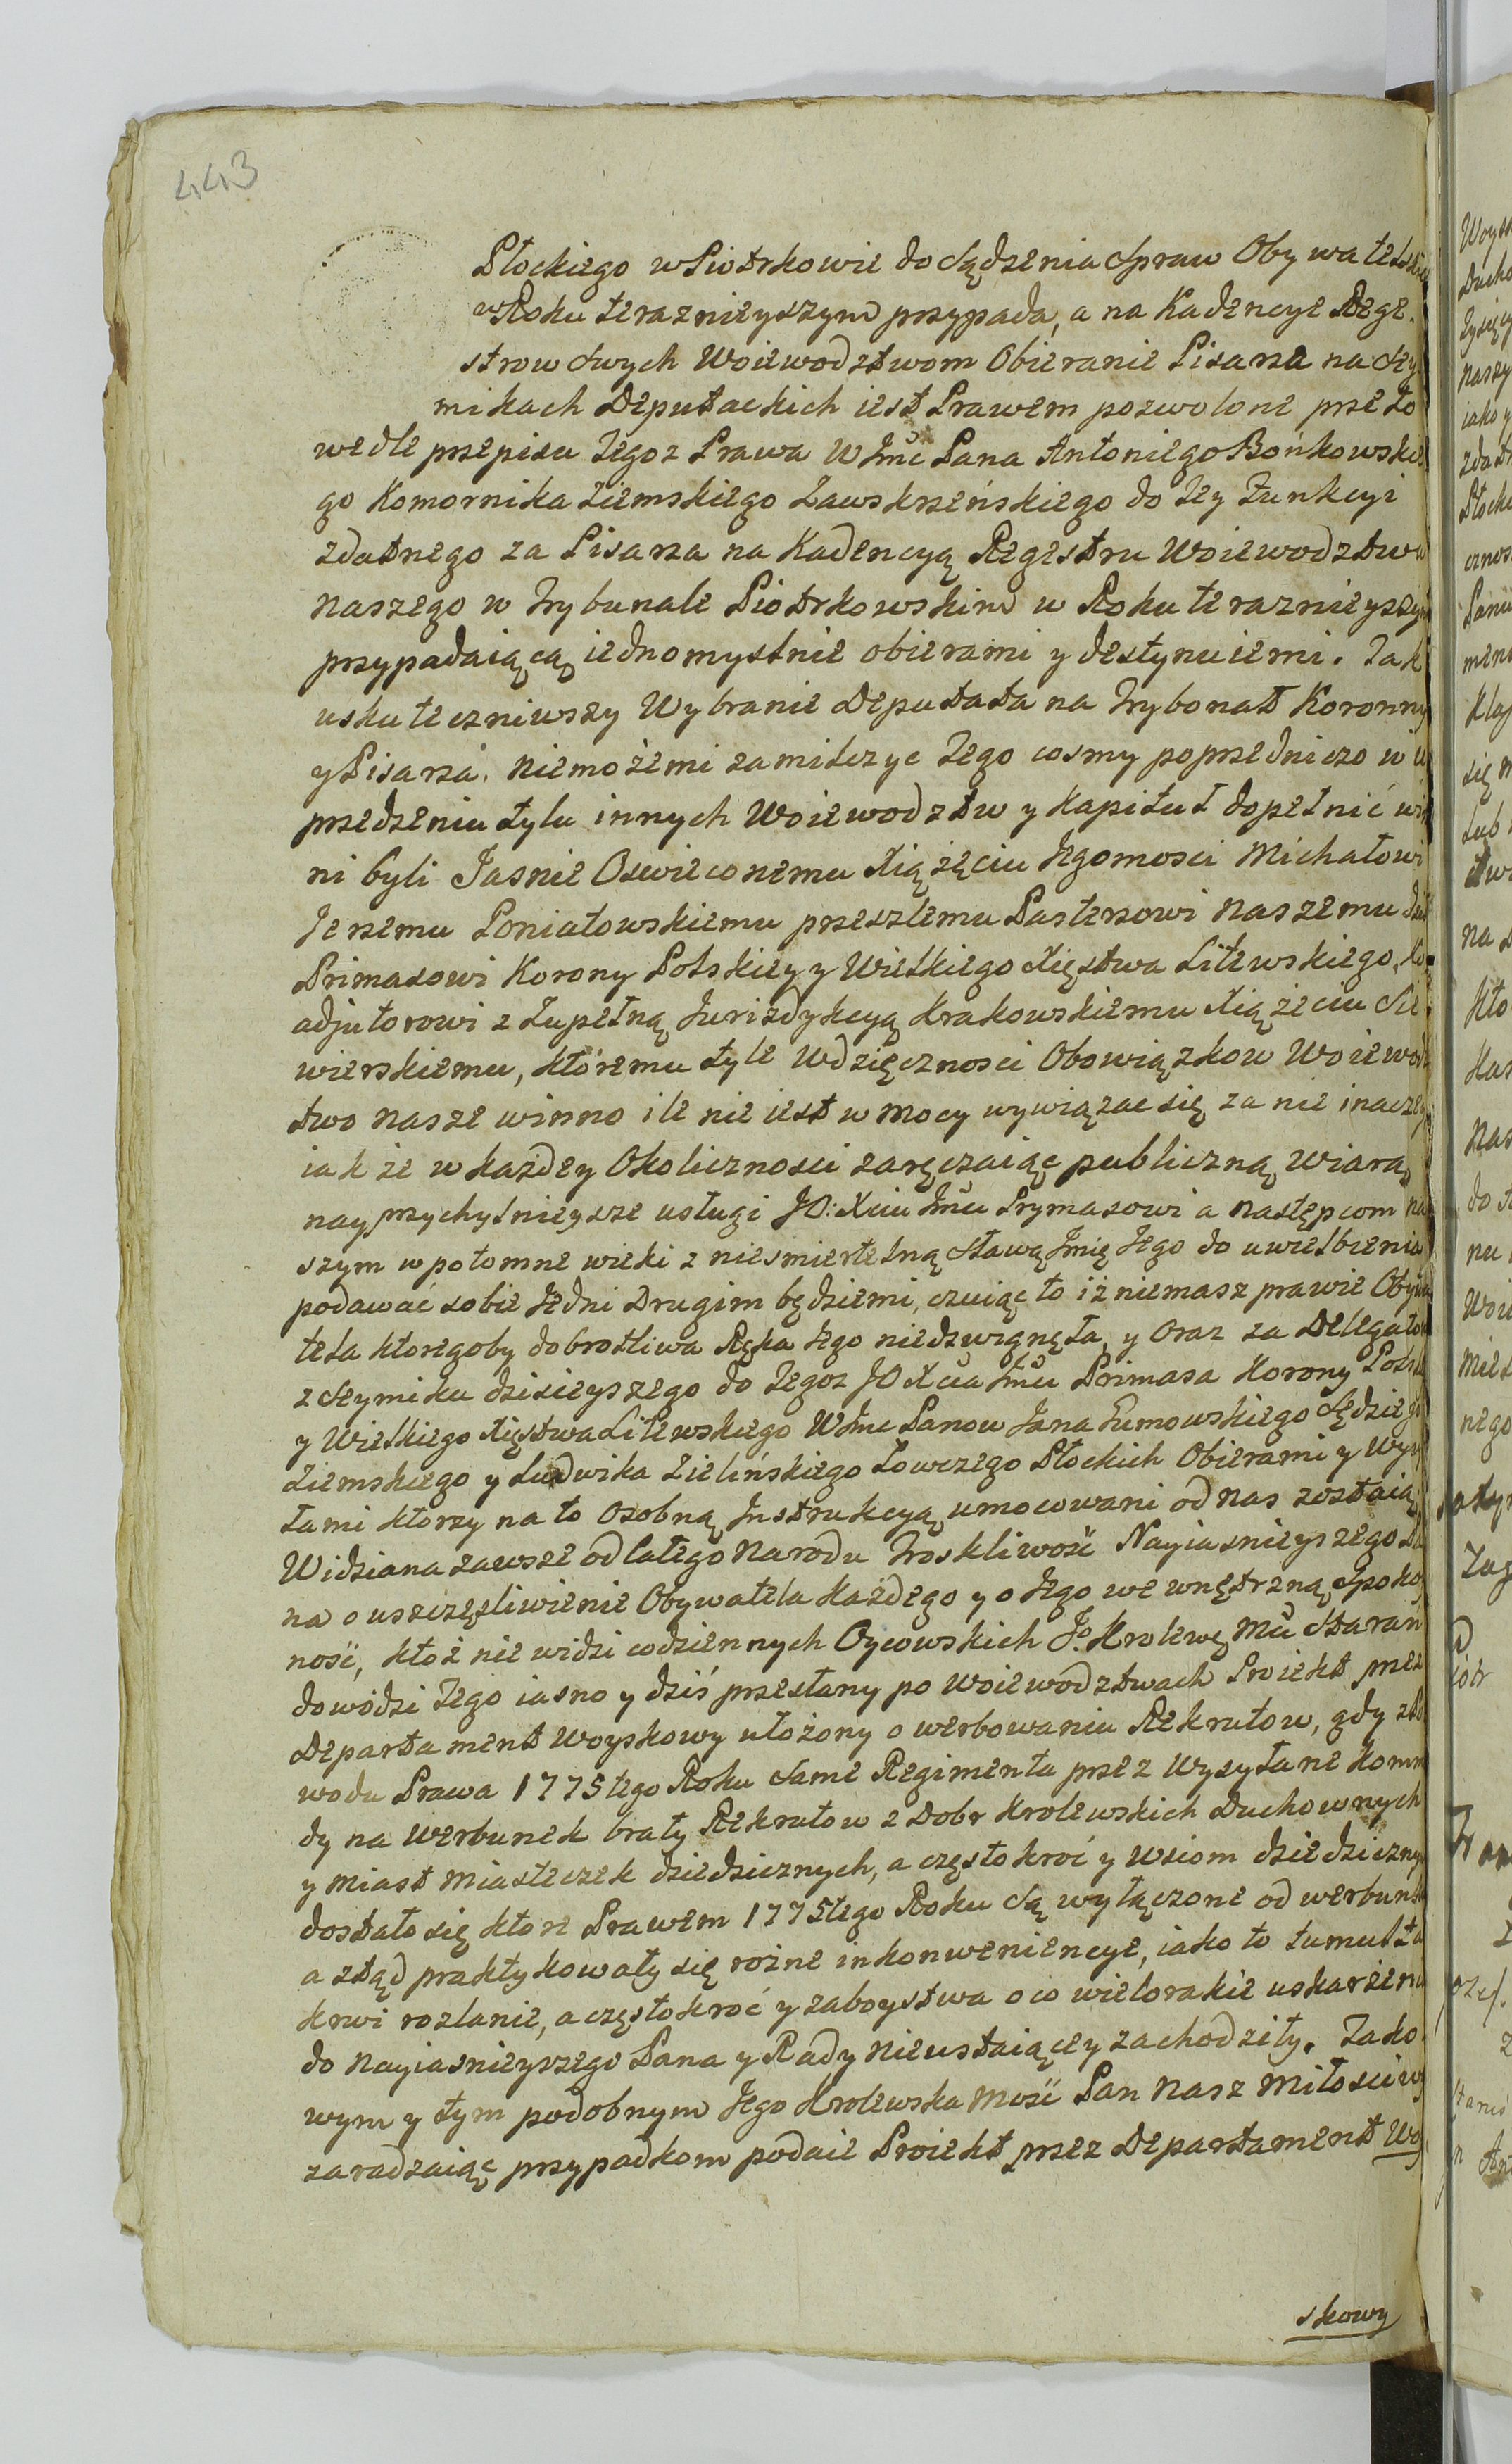 443
Płockiego w Piotrkowie do Sądzenia Spraw Obywatelskich
w Roku terazniejszym przypada, a na Kadencye Rege-
strow swych Woiewodztwom Obieranie Pisarza na Sey-
mikach Deputackich iest Prawem pozwolone przeto
wedle przepisu Tegoz Prawa WJmć Pana Antoniego Bońkowskie-
go Komornika Ziemskiego Zawskrzeńskiego do Tey Funkcyi
zdatnego za Pisarza na Kadencyą Regestru Woiewodztwa
naszego w Trybunale Piotrkowskim w Roku terazniejszym
przypadaiącą iednomyslnie obierami y destynuiemi. Tak
uskuteczniwszy Wybranie Deputata na Trybonał Koronny
y Pisarza, niemożemi zamilczyc Tego cosmy poprzedniczo w u
przedzeniu tylu innych Woiewodztw y Kapituł dopełnić win
ni byli Jasnie Oswieconemu Xiążęciu Jegomosci Michałowi
Jerzemu Poniatowskiemu przeszłemu Pasterzowi naszemu
Primasowi Korony Polskiey y Wielkiego Xięstwa Litewskiego, Ko-
adjutorowi z Zupełną Jurizdykcyą Krakowskiemu Xiążęciu Sie-
wierskiemu, któremu tyle Wdzięcznosci Obowiązkow Woiewodz
two nasze winno ile nie iest w mocy wywiązac się za nie inaczey
iak że w każdey Okolicznosci zaręczaiąc publiczną Wiarą
nayprzychylnieysze usługi JO: Xciu Jmci Prymasowi a następcom na
szym w potomne wieki z niesmiertelną Sławą Jmię Jego do uwielbienia
podawać sobie Jedni Drugim będziemi, czuiąc to iż niemasz prawie Obywa
tela ktoregoby dobrotliwa Ręka Jego niedzwignęła, y Oraz za Delegatow
z Seymiku dzisieyszego do Tegoz JO Xcia Jmci Primasa Korony Polsk
y Wielkiego Xięstwa Litewskiego WJmc Panow Jana Sumowskiego Sędziego
Ziemskiego y Ludwika Zielińskiego Łowczego Płockich Obierami y Wysy
łami ktorzy na to Osobną Jnstrukcyą umocowani od nas zostaią
Widziana zawsze od całego Narodu Troskliwość Nayiasnieyszego Pa
na o uszczęsliwienie Obywatela Każdego y o Jego wewnętrzną Spokoy
ność, któż nie widzi codziennych Oycowskich Jo. Krolewę Mci Staran
dowodzi Tego iasno y dziś przesłany po Woiewodztwach Proiekt przez
Departament Woyskowy ułożony o werbowaniu Rekrutow, gdy z Po
wodu Prawa 1775tego Roku Same Regimenta przez Wysyłane Komm
dy na Werbunek brały Rekrutow z Dobr Krolewskich Duchownych
y Miast Miasteczek dziedzicznych, a częstokroć y Wsiom dziedzicznym
dostało się które Prawem 1775tego Roku Są wyłączone od werbunku
a ztąd praktykowały się rożne inkonweniencye, iako to tumulta
krwi rozlanie, a częstokroć y zaboystwa o co wielorakie uskarżenia
do Nayiasnieyszego Pana y Rady Nieustaiącey zachodziły. Tako-
wym y tym podobnym Jego Krolewska Mość Pan Nasz Miłosciwy
zaradzaiąc przypadkom podaie Proiekt przez Departament Woy
skowy